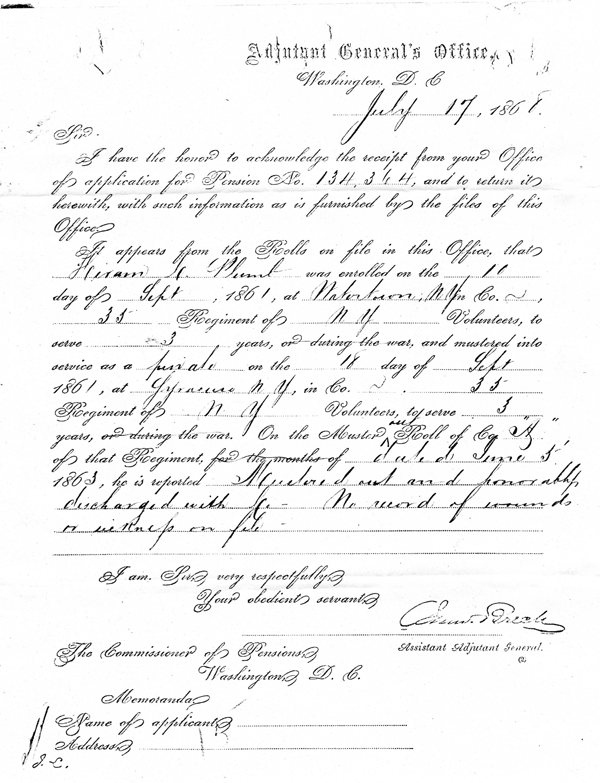 Adjutant General's Office,
Washington, D. C
July 17, 1868.
Sir:
I have the honor to acknowledge the receipt from your Office
of application for Pension No. 134,344, and to return it
herewith, with such information as is furnished by the files of this
Office.
It appears from the Rolls on file in this Office, that
Hiram Plumb was enrolled on the
day of Sept, 1861, at Watertown, N.Y. in Co. ~,
35 Regiment of N Y Volunteers, to
serve 3 years, or during the war, and mustered into
service as a private on the 18 day of Sept
1861, at Syracuse N Y, in Co. ~. 35
Regiment of N Y Volunteers, to serve 3
years, or during the war. On the Muster out Roll of Co
of that Regiment, for the months of dated June 5"
1863, he is reported Mustered out and honorably
discharged with Co - No record of wounds
or sickness on file -
I am, Sir, very respectfully,
Your obedient servant,
Assistant Adjutant General.
The Commissioner of Pensions,
Washington, D. C.
Memoranda,
Name of applicant,
Address,